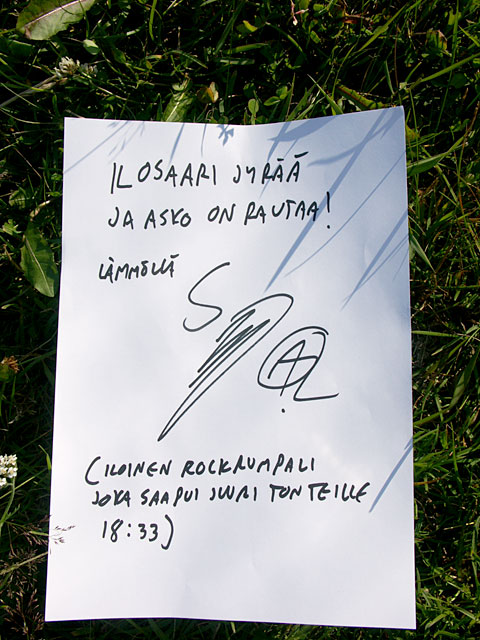 ILOSAARI JYRÄÄ
JA ASKO ON RAUTAA!
LÄMMÖLLÄ
(ILOINEN ROCKRUMPALI
JOKA SAAPUI JUURI TONTEILLE
18:33)